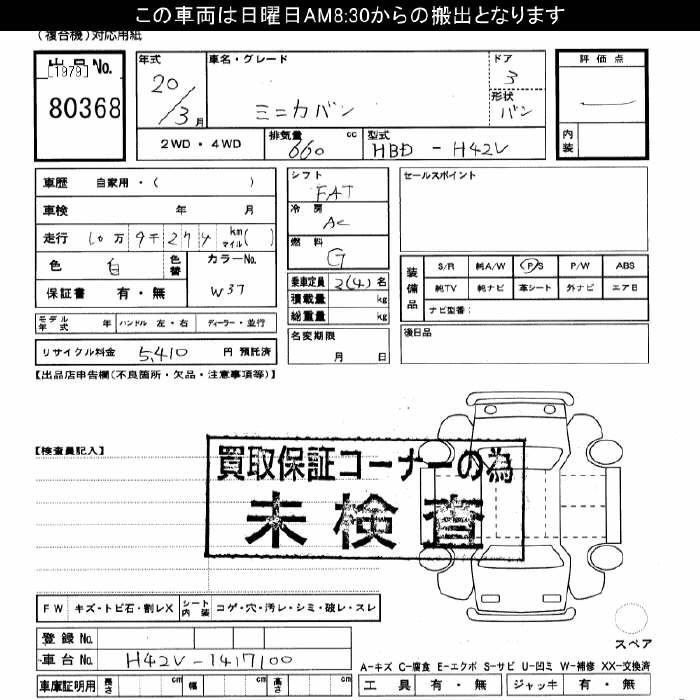 この車両は日曜日AM8:30からの搬出となります
(複合機)対応用紙
出品No.
[1979]
80368
年式
20/3月
車名・グレード
ミニカバン
ドア
3
形状
バン
評価点
内装
2WD・4WD
排気量 660 cc
型式 HBD - H42V
車歴 自家用・( )
車検 年 月
走行 10万 9千 274 km マイル( )
色 白 色替
カラーNo. W37
保証書 有・無
シフト FAT
冷房 AC
燃料 G
乗車定員 2(4)名
積載量 kg
総重量 kg
名変期限 月 日
セールスポイント
装備品
S/R 純A/W P/S P/W ABS
純TV 純ナビ 革シート 外ナビ エアB
ナビ型番:
後日品
モデル年式 年 ハンドル 左・右 ディーラー・並行
リサイクル料金 5,410 円 預託済
【出品店申告欄(不良箇所・欠品・注意事項等)】
【検査員記入】
買取保証コーナーの為
未検査
FW キズ・トビ石・割レX シート内装 コゲ・穴・汚レ・シミ・破レ・スレ
登録No.
車台No. H42V-1417100
車庫証明用 長さ cm 幅 cm 高さ cm
スペア
A-キズ C-腐食 E-エクボ S-サビ U-凹ミ W-補修 XX-交換済
工具 有・無 ジャッキ 有・無